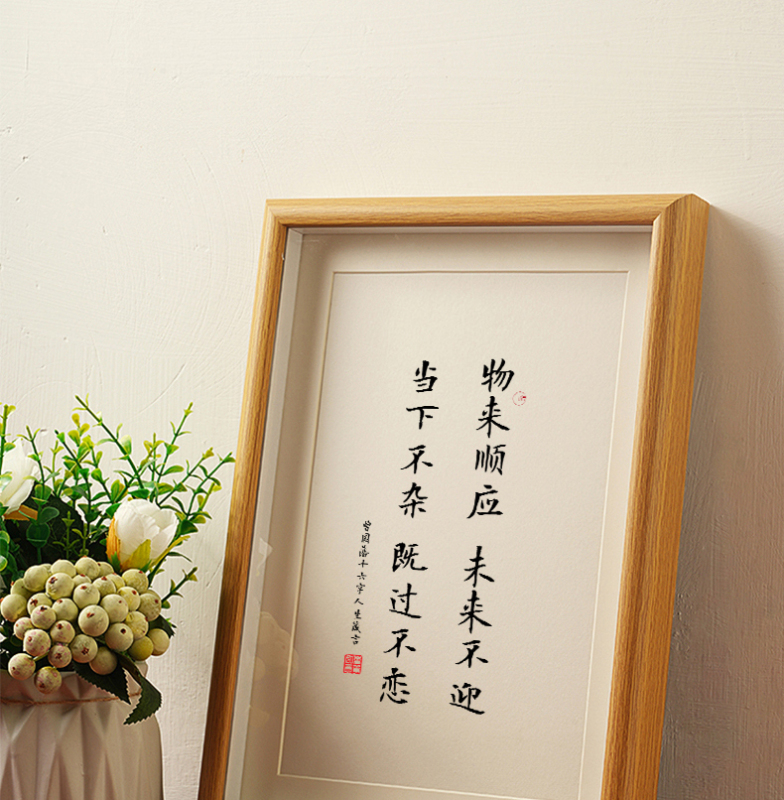 物来顺应 未来不迎
当下不杂 既过不恋
曾国藩十六字人生箴言